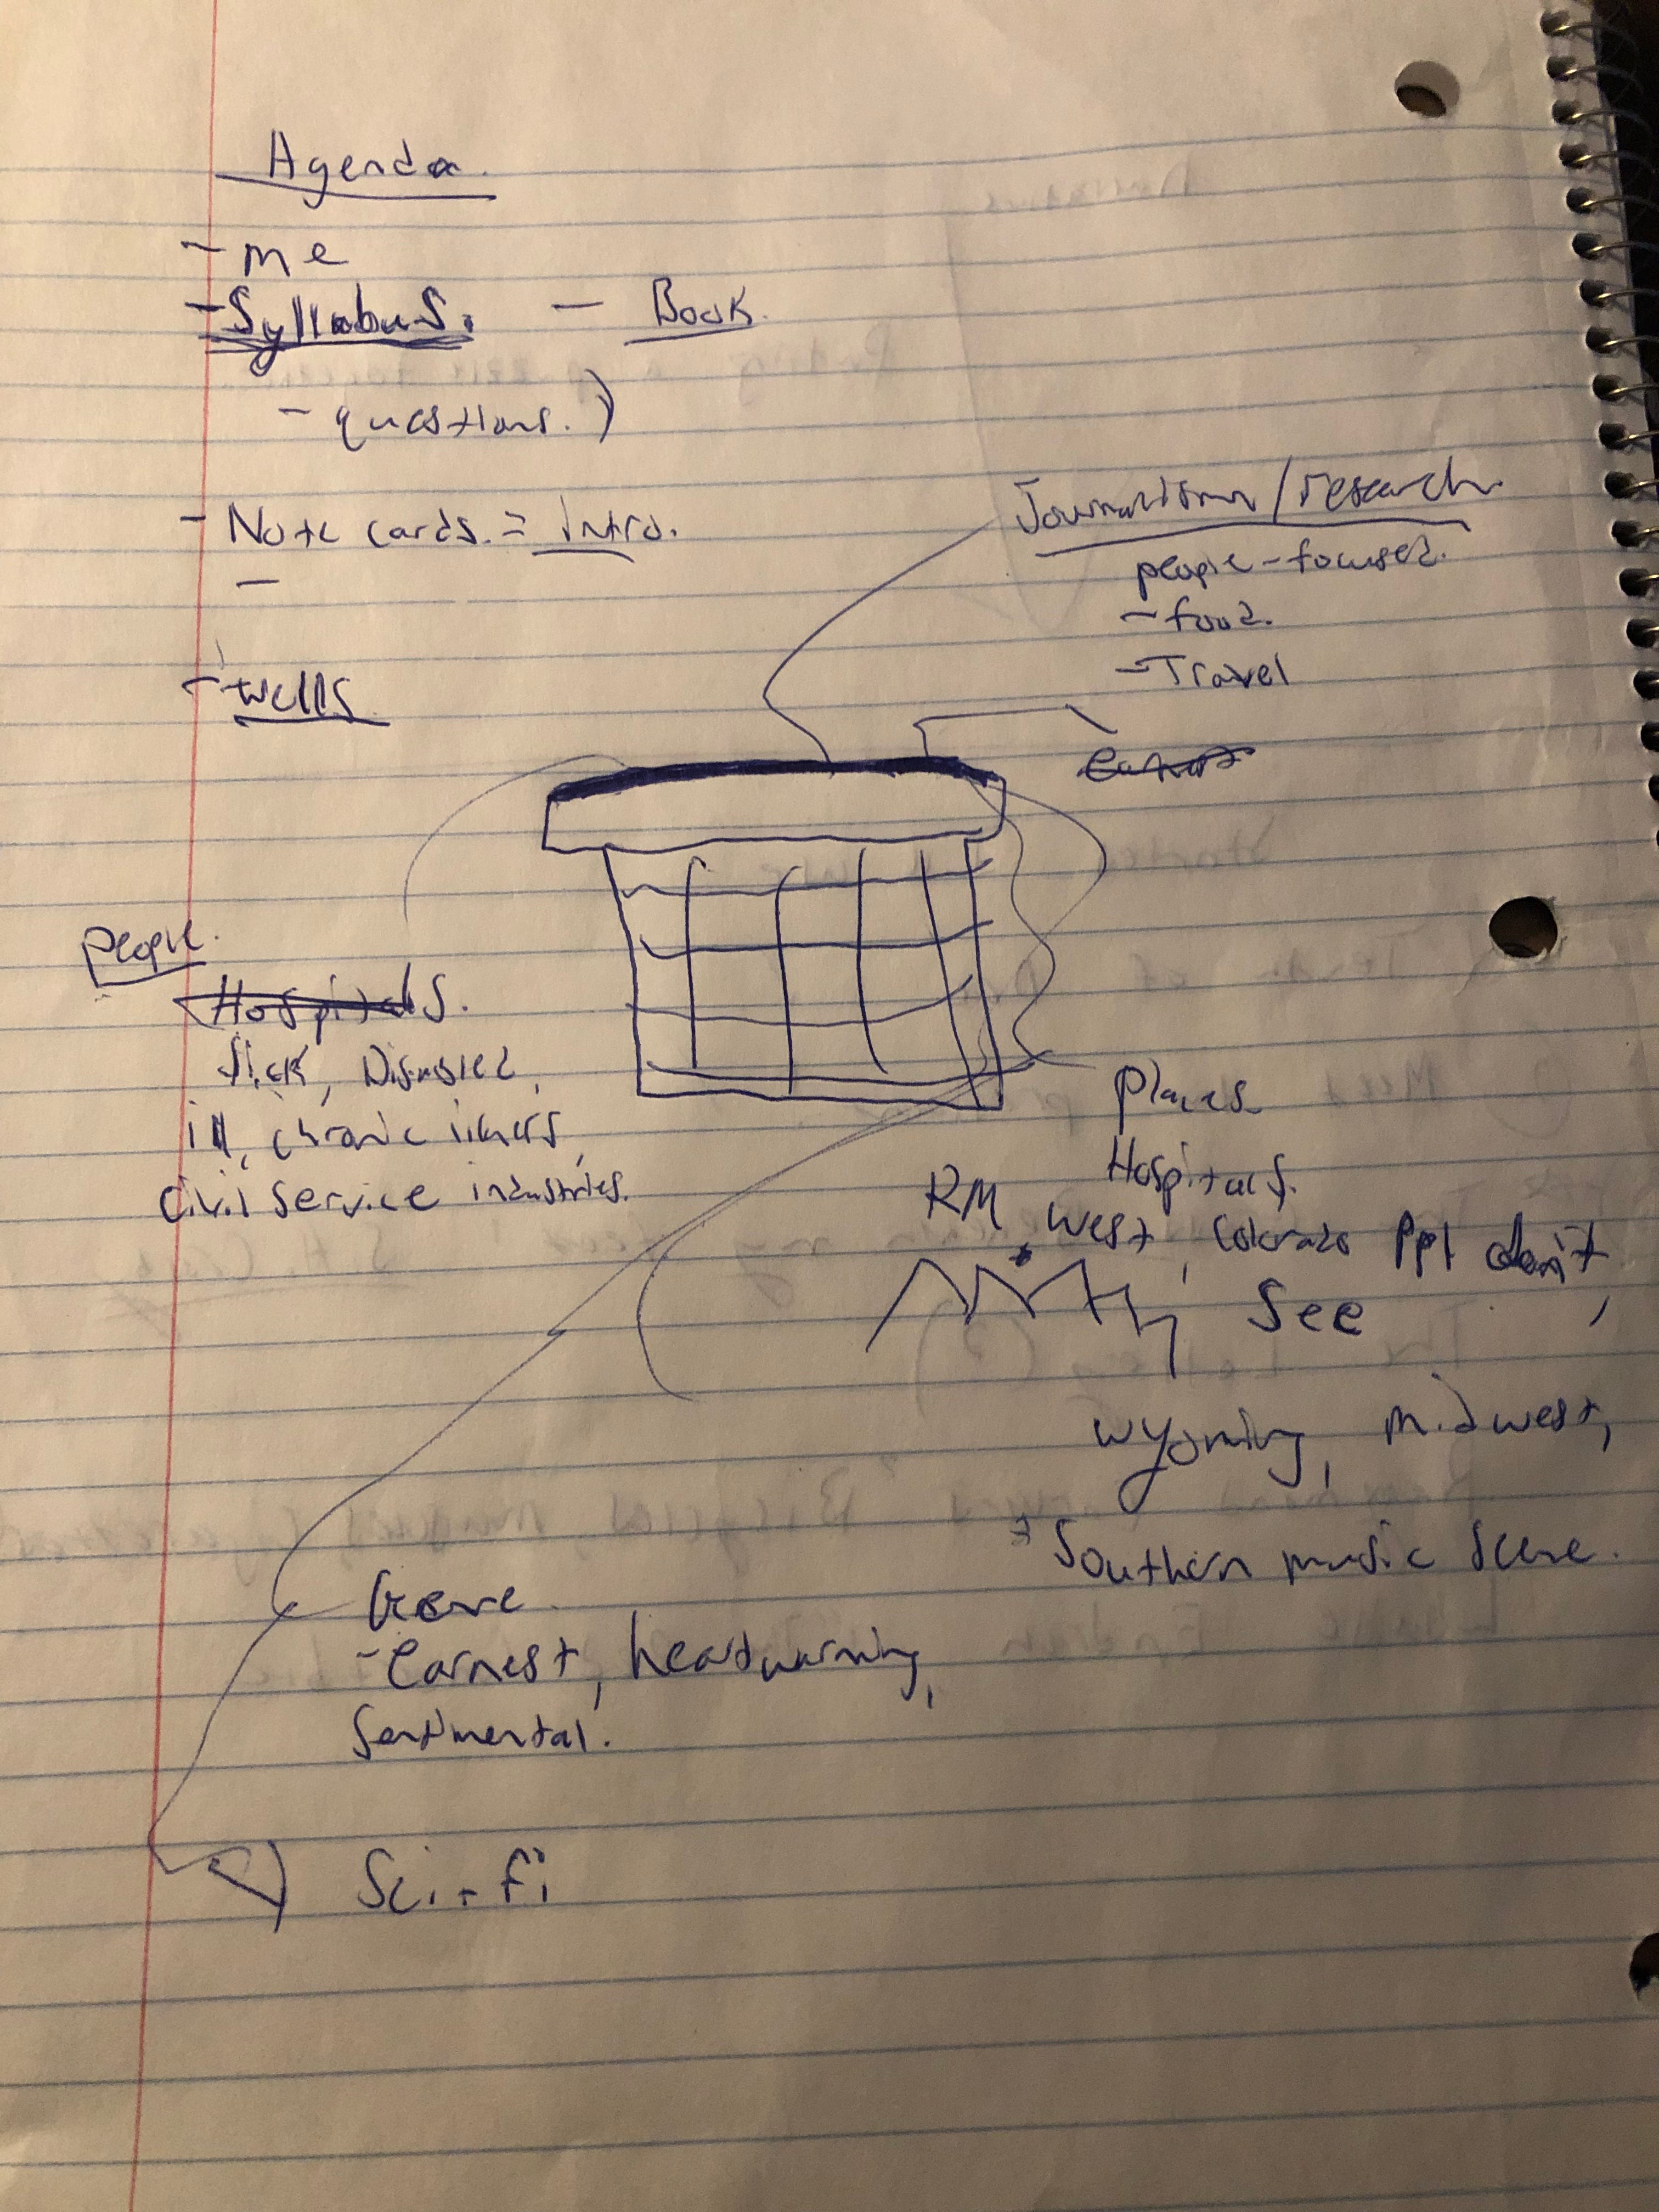 Agenda.
- me
- Syllabus. - Book.
- questions.)
- Note cards. = intro.
-
- Wells
Journalism/research.
people-focused.
- food.
- Travel
People.
Hospitals.
Sick, Disabled,
ill, chronic illness,
Civil service industries.
Places
Hospitals.
RM West, Colorado Ppl don't
See
Wyoming, Midwest,
Southern music scene.
Genre.
- Earnest, heartwarming,
Sentimental.
Sci-fi